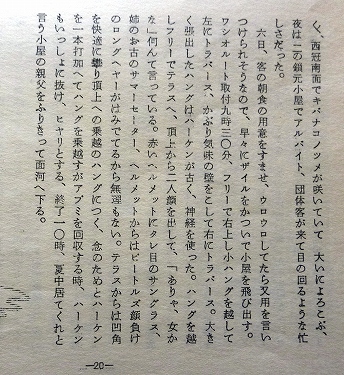 く、西冠南面でキバナコノツメが咲いていて　大いによろこぶ、
夜は一の鎖元小屋でアルバイト、団体客が来て目の回るような忙
しさだった。
　六日、客の朝食の用意をすませ、ウロウロしてたら又用を言い
つけられそうなので、早々にザイルをかついで小屋を飛び出す。
ワシオルート取付九時三〇分、フリーで右上し小ハングを越して
左にトラバース、かぶり気味の壁をこして右にトラバース。大き
く張出したハングはハーケンが古く、神経を使った。ハングを越
しフリーでテラスへ、頂上から二人顔を出して、「ありゃ、女か
な」何んて言っている。赤いヘルメットにタレ目のサングラス、
姉のお古のサマーセーター、ヘルメットからはビートルズ顔負け
のロングヘヤーがはみでてるから無理もない。テラスからは凹角
を快適に攀り頂上への乗越のハングにつく、念のためとハーケン
を一本打加へてハングを乗越すがアブミを回収する時、ハーケン
もいっしょに抜け、ヒヤリとする、終了一〇時、夏中居てくれと
言う小屋の親父をふりきって面河へ下る。
—20—